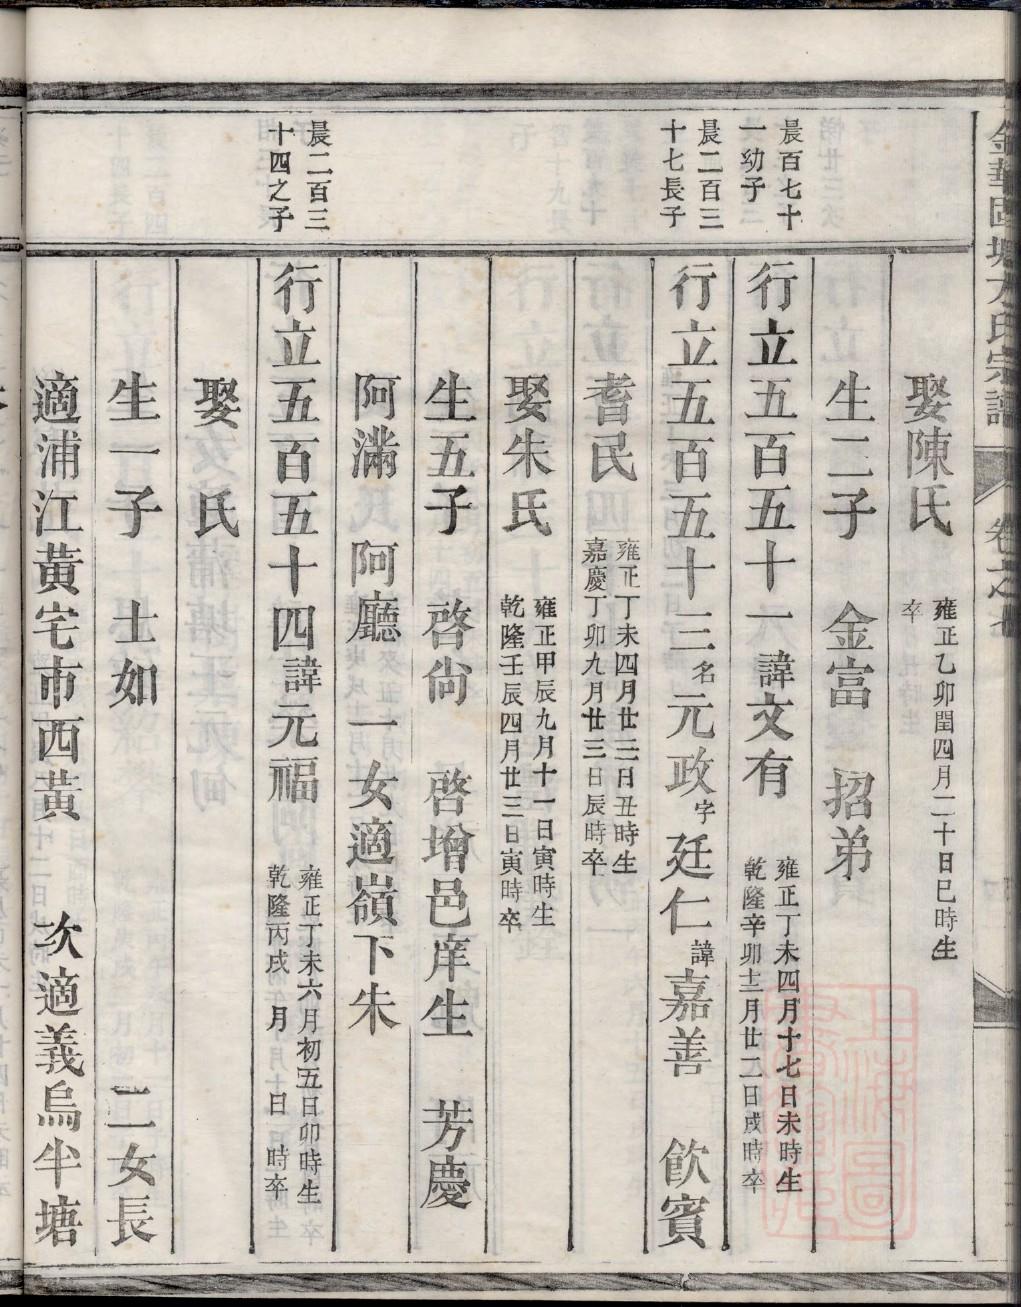 金華國塘方氏宗譜 卷之七
娶陳氏 雍正乙卯閏四月二十日巳時生
卒
生二子 金富 招弟
晨百七十
一幼子
行立五百五十一 諱文有 雍正丁未四月十七日未時生
乾隆辛卯十二月廿二日戌時卒
晨二百三
十七長子
行立五百五十三 名元政 字廷仁 諱嘉善 飲賓
耆民 雍正丁未四月廿三日丑時生
嘉慶丁卯九月廿三日辰時卒
娶朱氏 雍正甲辰九月十一日寅時生
乾隆壬辰四月廿三日寅時卒
生五子 啓尙 啓增邑庠生 芳慶
阿滿 阿廳 一女適嶺下朱
晨二百三
十四之子
行立五百五十四 諱元福 雍正丁未六月初五日卯時生
乾隆丙戌 月 日 時卒
娶 氏
生一子 士如 二女長
適浦江黃宅市西黃 次適義烏半塘